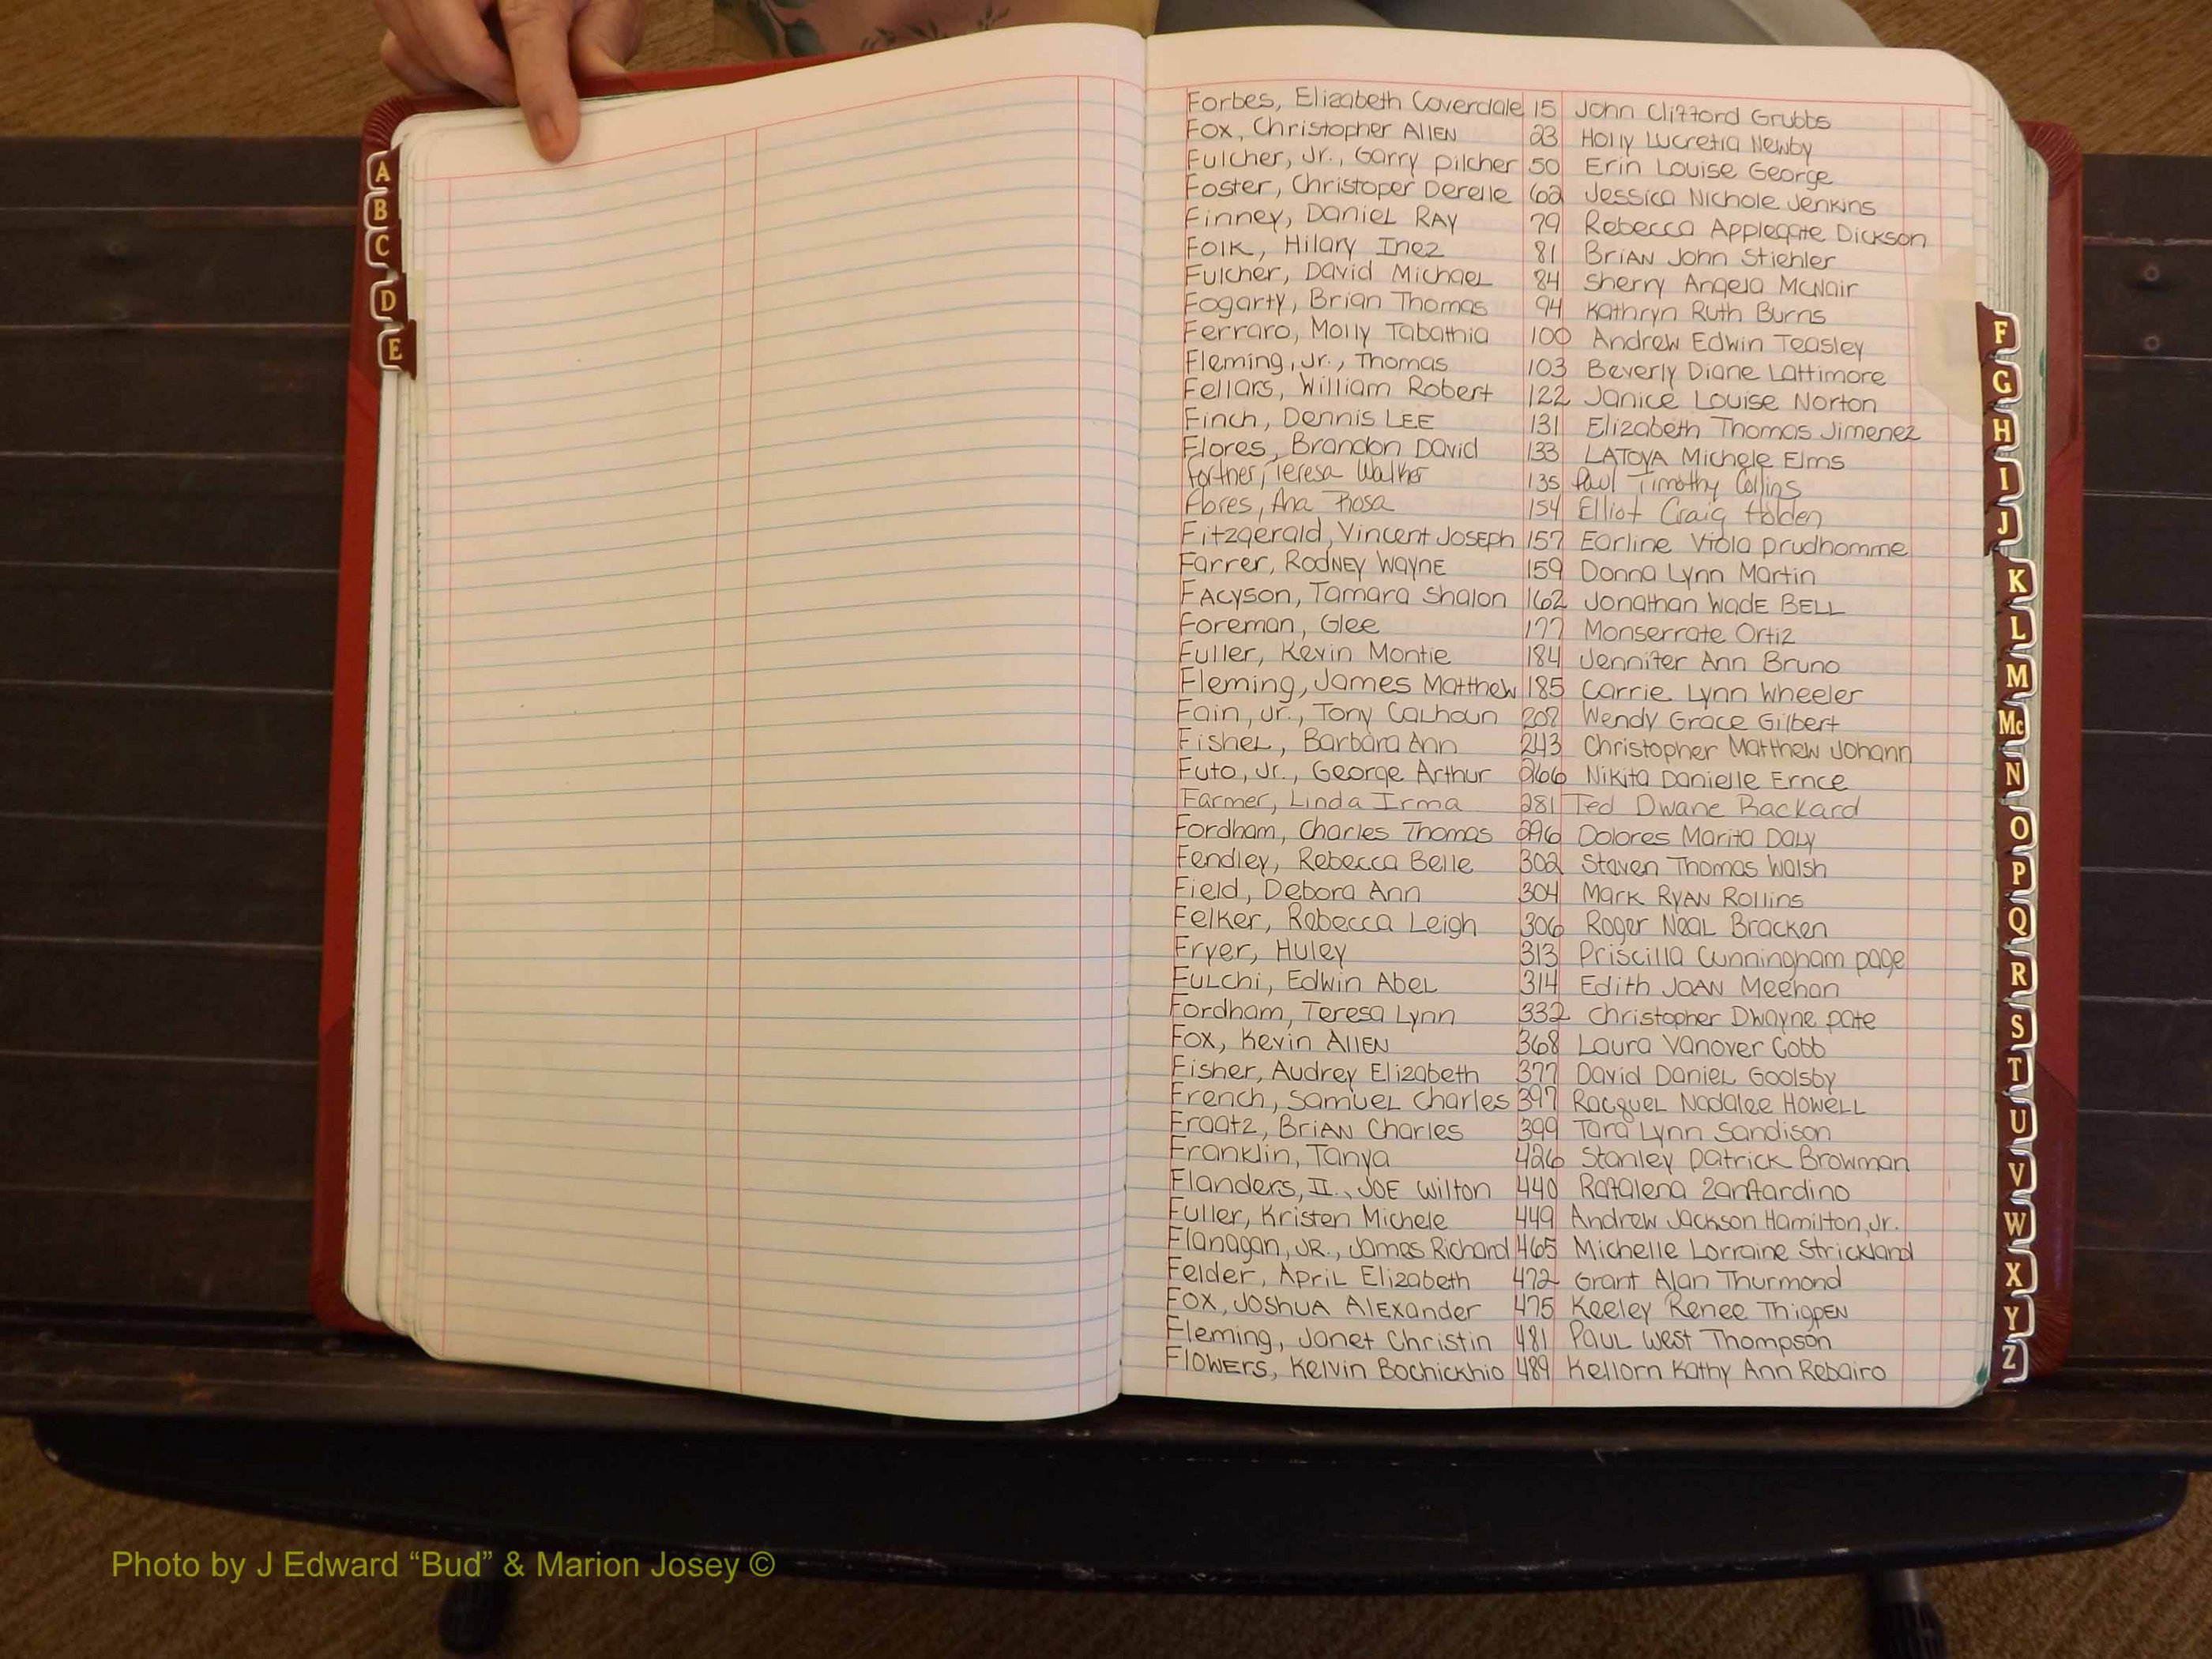 A
B
C
D
E
Forbes, Elizabeth Coverdale 15 John Clifford Grubbs
Fox, Christopher Allen 23 Holly Lucretia Newby
Fulcher, Jr., Garry Pilcher 50 Erin Louise George
Foster, Christoper Derelle 62 Jessica Nichole Jenkins
Finney, Daniel Ray 79 Rebecca Applegate Dickson
Folk, Hilary Inez 81 Brian John Stiehler
Fulcher, David Michael 84 Sherry Angela McNair
Fogarty, Brian Thomas 94 Kathryn Ruth Burns
Ferraro, Molly Tabathia 100 Andrew Edwin Teasley
Fleming, Jr., Thomas 103 Beverly Diane Lattimore
Fellars, William Robert 122 Janice Louise Norton
Finch, Dennis Lee 131 Elizabeth Thomas Jimenez
Flores, Brandon David 133 LaToya Michele Elms
Fortner, Teresa Walker 135 Paul Timothy Collins
Flores, Ana Rosa 154 Elliot Craig Holden
Fitzgerald, Vincent Joseph 157 Earline Viola Prudhomme
Farrer, Rodney Wayne 159 Donna Lynn Martin
Facyson, Tamara Shalon 162 Jonathan Wade Bell
Foreman, Glee 177 Monserrate Ortiz
Fuller, Kevin Montie 184 Jennifer Ann Bruno
Fleming, James Matthew 185 Carrie Lynn Wheeler
Fain, Jr., Tony Calhoun 207 Wendy Grace Gilbert
Fishel, Barbara Ann 243 Christopher Matthew Johann
Futo, Jr., George Arthur 266 Nikita Danielle Ernce
Farmer, Linda Irma 281 Ted Dwane Rackard
Fordham, Charles Thomas 296 Dolores Marita Daly
Fendley, Rebecca Belle 302 Steven Thomas Walsh
Field, Debora Ann 304 Mark Ryan Rollins
Felker, Rebecca Leigh 306 Roger Neal Bracken
Fryer, Huley 313 Priscilla Cunningham Page
Fulchi, Edwin Abel 314 Edith Joan Meehan
Fordham, Teresa Lynn 332 Christopher Dwayne Pate
Fox, Kevin Allen 368 Laura Vanover Cobb
Fisher, Audrey Elizabeth 377 David Daniel Goolsby
French, Samuel Charles 397 Racquel Nadalee Howell
Fraatz, Brian Charles 399 Tara Lynn Sandison
Franklin, Tanya 426 Stanley Patrick Browman
Flanders, II., Joe Wilton 440 Rafalena Zanfardino
Fuller, Kristen Michele 449 Andrew Jackson Hamilton, Jr.
Flanagan, Jr., James Richard 465 Michelle Lorraine Strickland
Felder, April Elizabeth 472 Grant Alan Thurmond
Fox, Joshua Alexander 475 Keeley Renee Thigpen
Fleming, Janet Christin 481 Paul West Thompson
Flowers, Kelvin Bochickhio 489 Kellorn Kathy Ann Rebairo
F
G
H
I
J
K
L
M
Mc
N
O
P
Q
R
S
T
U
V
W
X
Y
Z
Photo by J Edward “Bud” & Marion Josey ©